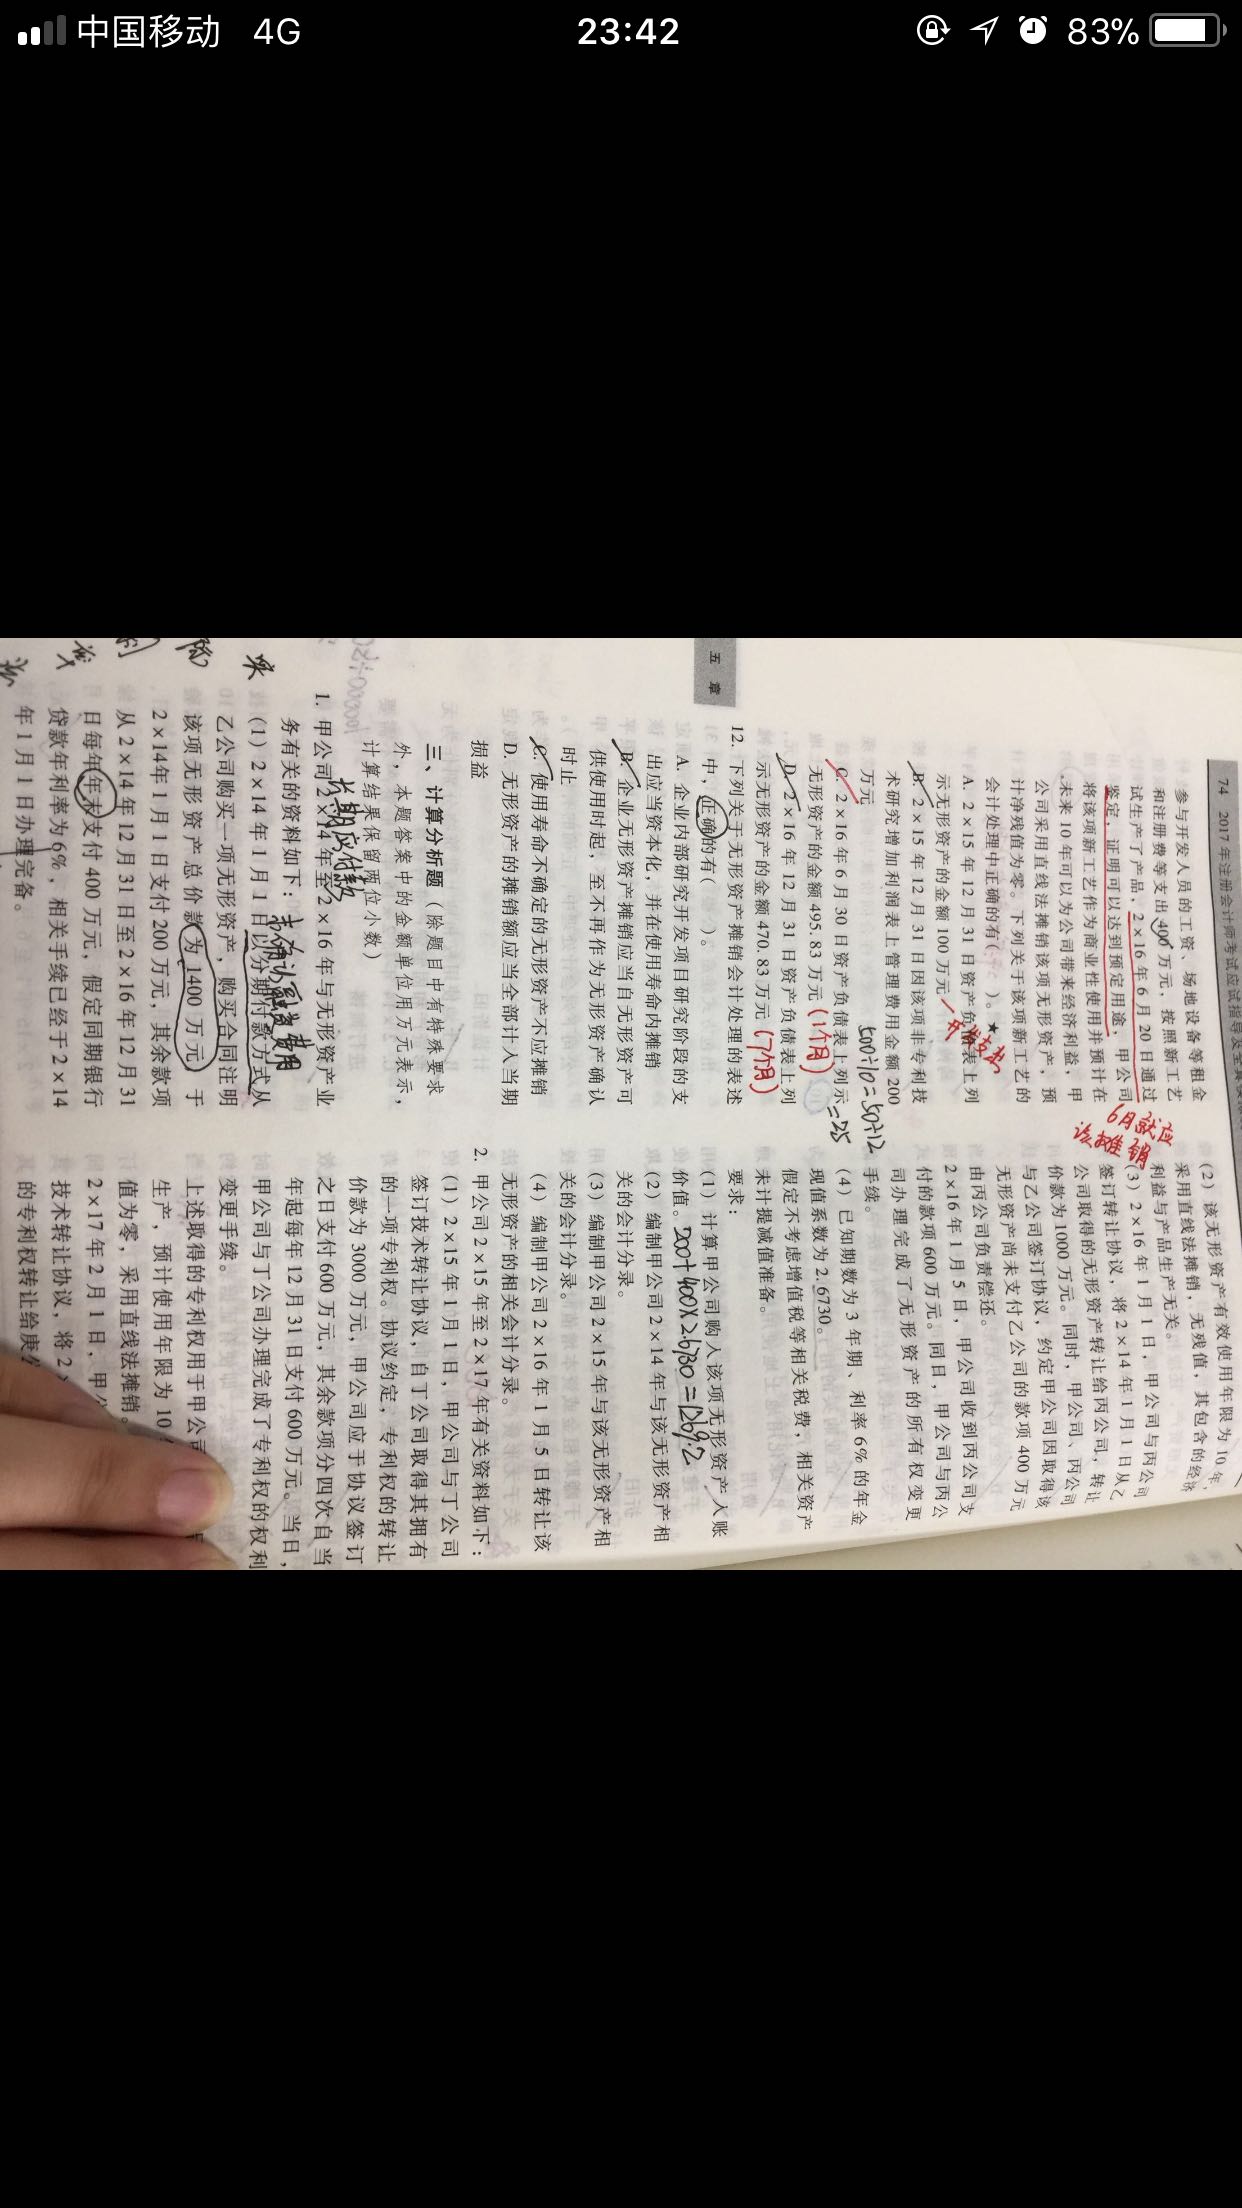 中国移动 4G 23:42 83%
74 2017年注册会计师考试应试指导及全
参与开发人员的工资、场地设备等租金
和注册费等支出400万元，按照新工艺
试生产了产品，2×16年6月20日通过
鉴定，证明可以达到预定用途，甲公司
将该项新工艺作为商业性使用并预计在
未来10年可以为公司带来经济利益，甲
公司采用直线法摊销该项无形资产，预
计净残值为零。下列关于该项新工艺的
会计处理中正确的有( )。★
A. 2×15年12月31日资产负债表上列
示无形资产的金额100万元
开发支出
B. 2×15年12月31日因该项非专利技
术研究增加利润表上管理费用金额200
万元
500÷10=50÷12
=25
C. 2×16年6月30日资产负债表上列示
无形资产的金额495.83万元(1个月)
D. 2×16年12月31日资产负债表上列
示无形资产的金额470.83万元(7个月)
6月就应
该摊销
五章
12. 下列关于无形资产摊销会计处理的表述
中，正确的有( )。
A. 企业内部研究开发项目研究阶段的支
出应当资本化，并在使用寿命内摊销
B. 企业无形资产摊销应当自无形资产可
供使用时起，至不再作为无形资产确认
时止
C. 使用寿命不确定的无形资产不应摊销
D. 无形资产的摊销额应当全部计入当期
损益
三、计算分析题(除题目中有特殊要求
外，本题答案中的金额单位用万元表示，
计算结果保留两位小数)
长期应付款
1. 甲公司2×14年至2×16年与无形资产业
务有关的资料如下：
未确认融资费用
(1)2×14年1月1日以分期付款方式从
乙公司购买一项无形资产，购买合同注明
该项无形资产总价款为1400万元，于
2×14年1月1日支付200万元，其余款项
从2×14年12月31日至2×16年12月31
日每年年末支付400万元，假定同期银行
贷款年利率为6%，相关手续已经于2×14
年1月1日办理完备。
(2)该无形资产有效使用年限为10年，
采用直线法摊销，无残值，其包含的经济
利益与产品生产无关。
(3)2×16年1月1日，甲公司与丙公司
签订转让协议，将2×14年1月1日从乙
公司取得的无形资产转让给丙公司，转让
价款为1000万元。同时，甲公司、丙公司
与乙公司签订协议，约定甲公司因取得该
无形资产尚未支付乙公司的款项400万元
由丙公司负责偿还。
2×16年1月5日，甲公司收到丙公司支
付的款项600万元。同日，甲公司与丙公
司办理完成了无形资产的所有权变更
手续。
(4)已知期数为3年期、利率6%的年金
现值系数为2.6730。
假定不考虑增值税等相关税费，相关资产
未计提减值准备。
要求：
(1)计算甲公司购入该项无形资产入账
价值。200+400×2.6730=1269.2
(2)编制甲公司2×14年与该无形资产相
关的会计分录。
(3)编制甲公司2×15年与该无形资产相
关的会计分录。
(4)编制甲公司2×16年1月5日转让该
无形资产的相关会计分录。
2. 甲公司2×15年至2×17年有关资料如下：
(1)2×15年1月1日，甲公司与丁公司
签订技术转让协议，自丁公司取得其拥有
的一项专利权。协议约定，专利权的转让
价款为3000万元，甲公司应于协议签订
之日支付600万元，其余款项分四次自当
年起每年12月31日支付600万元。当日，
甲公司与丁公司办理完成了专利权的权利
变更手续。
上述取得的专利权用于甲公司
生产，预计使用年限为10
值为零，采用直线法摊销。
2×17年2月1日，甲公
技术转让协议，将2×
的专利权转让给庚